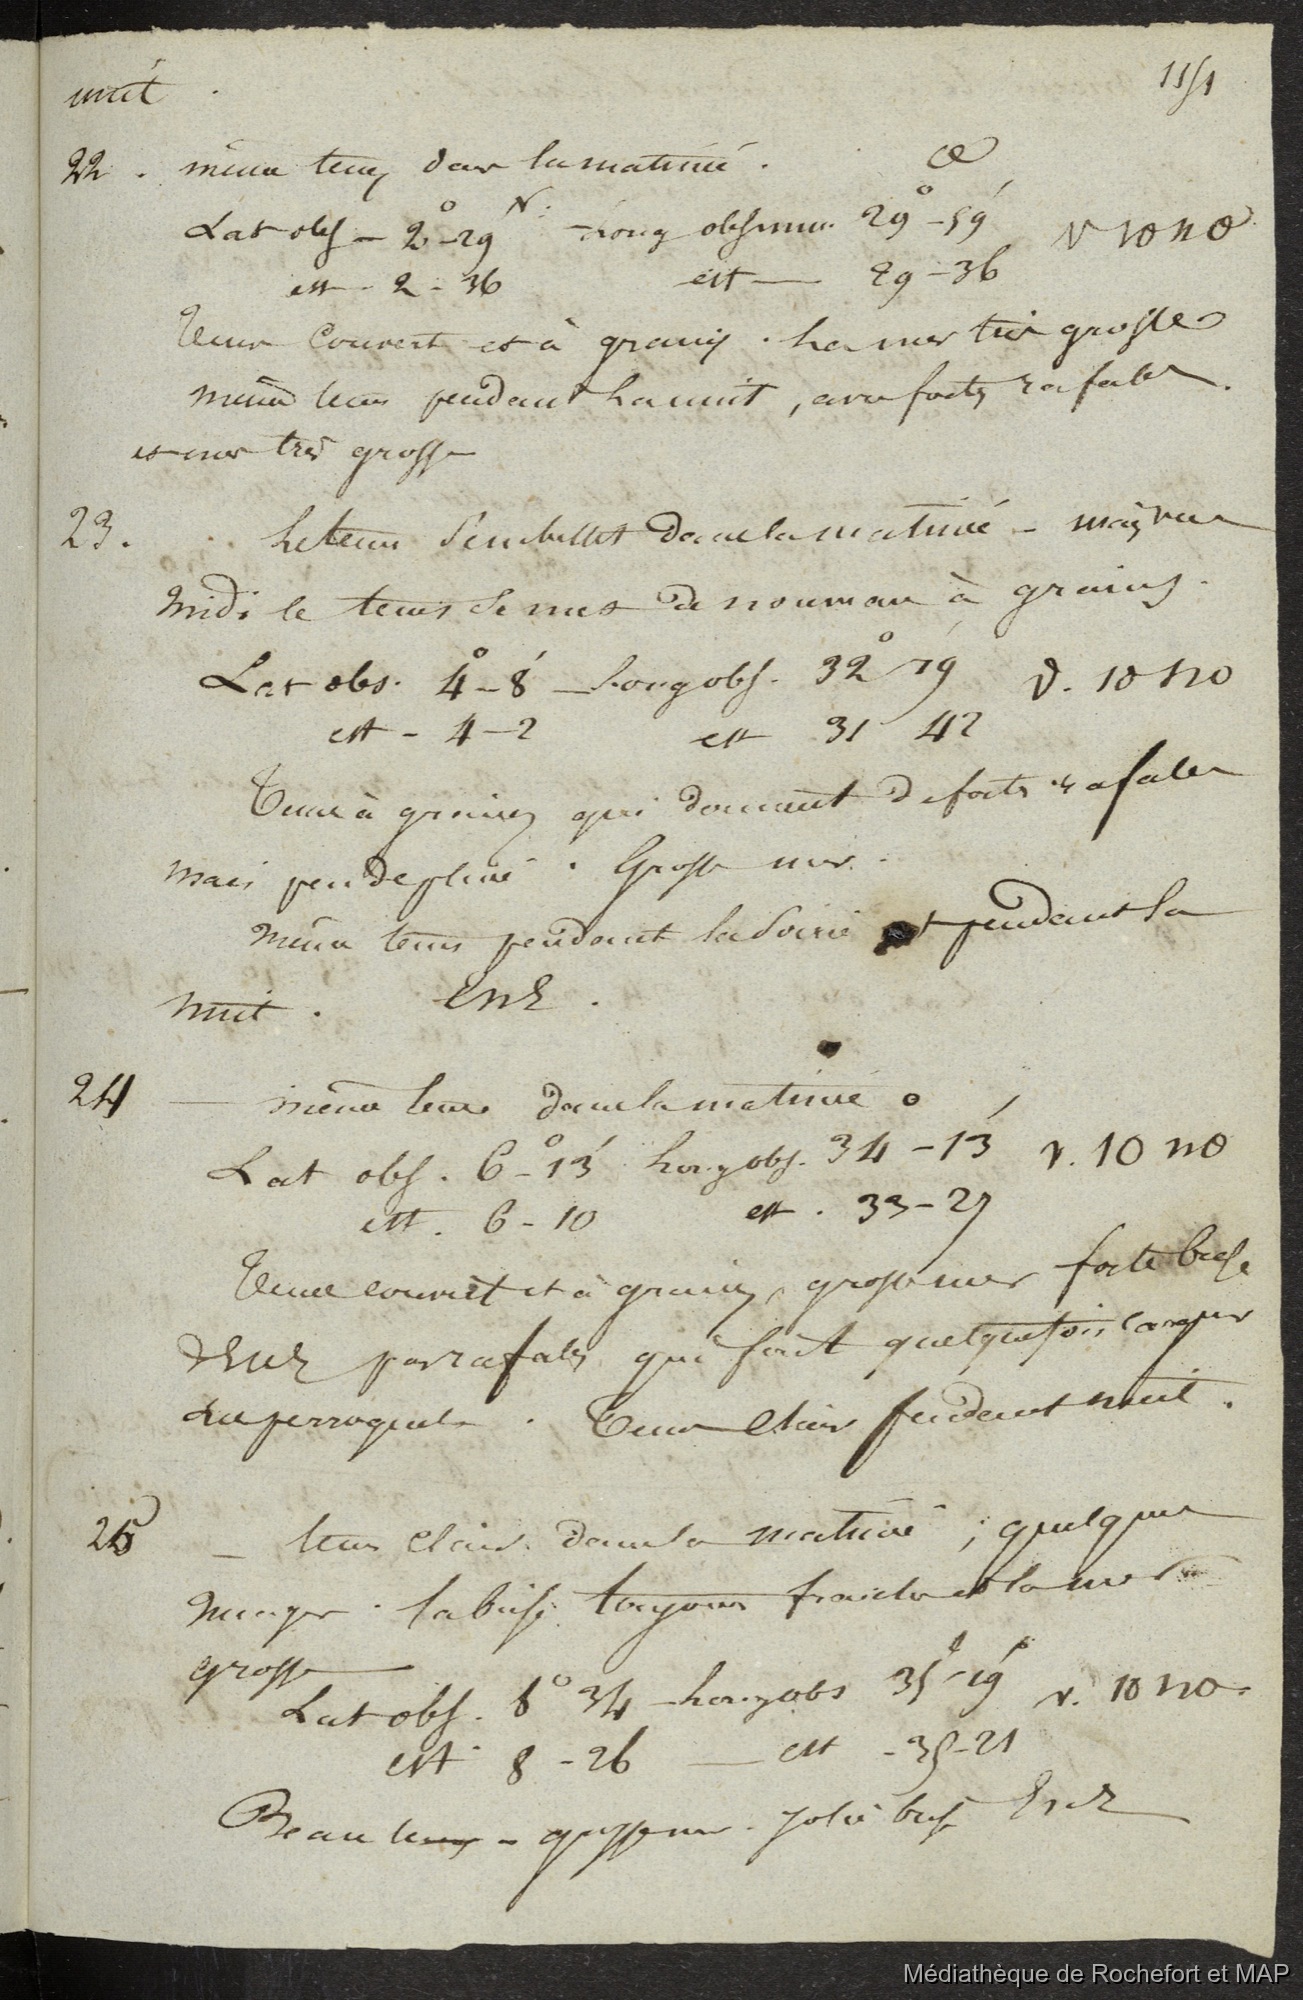 nuit
22. même tems dans la matinée.
Lat obs - 2° - 29' N: - Long obs 29° - 59' v 10 no
est - 2 - 36 est — 29 - 36
Tems couvert et à grains. La mer très grosse
même tems pendant la nuit, avec fortes rafales.
et mer très grosse
23. Le tems s'embellit dans la matinée - mais vers
midi le tems se mit de nouveau à grains.
Lat obs. 4° - 8' - Long obs. 32° 19' v. 10 no
est - 4 - 2 est 31 42
Tems à grains qui donnent de fortes rafales
mais peu de pluie. Grosse mer.
même tems pendant la soirée et pendant la
nuit. Ene.
24 — même tems dans la matinée
Lat obs. 6° - 13' Long obs. 34° - 13' v. 10 no
est. 6 - 10 est. 33 - 27
Tems couvert et à grains, grosse mer forte brise
d'Ene par rafales qui fait quelquefois carguer
les perroquets. Tems clair pendant nuit.
25 — tems clair dans la matinée ; quelques
nuages. la brise toujours fraiche et la mer
grosse
Lat obs. 8° 34 - Long obs 35° - 19' v. 10 no.
est 8 - 26 — est - 35 - 21
Beau tems - grosse mer. jolie brise Ene
Médiathèque de Rochefort et MAP